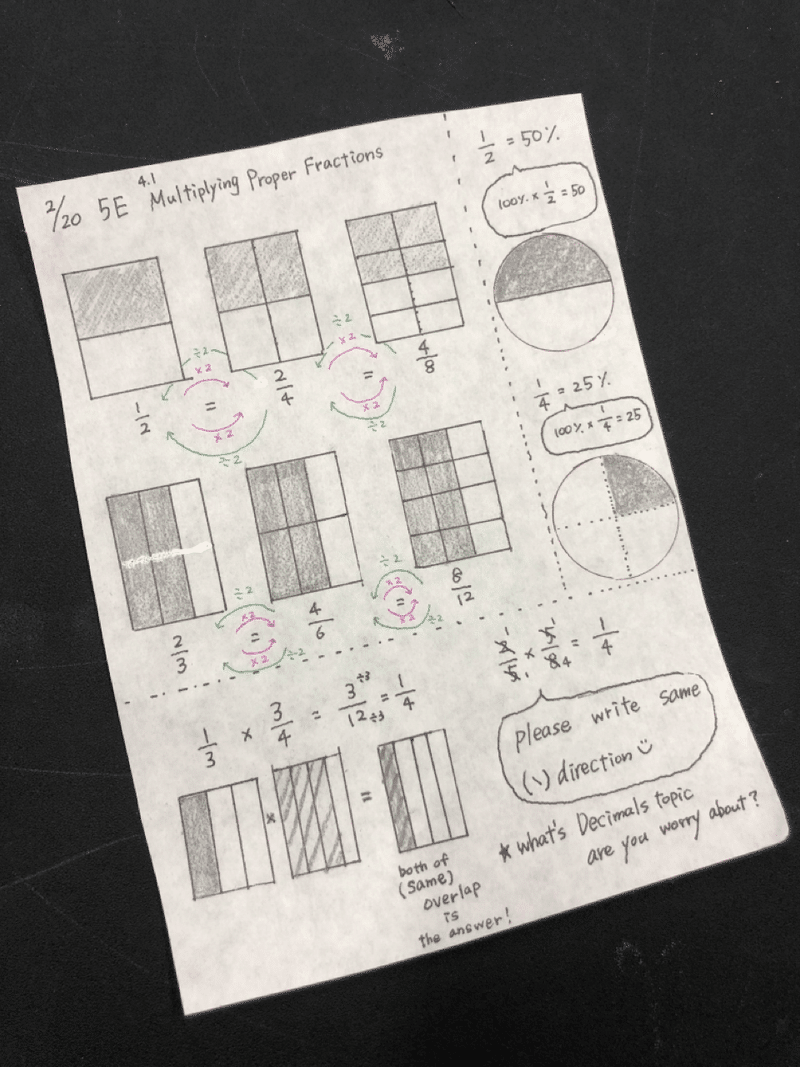 2/20 5E 4.1 Multiplying Proper Fractions
1/2 = 50%
100% × 1/2 = 50
÷2 ÷2
×2 ×2
1/2 = 2/4 = 4/8
×2 ×2
÷2 ÷2
1/4 = 25%
100% × 1/4 = 25
÷2 ÷2
×2 ×2
2/3 = 4/6 = 8/12
×2 ×2
÷2 ÷2
1/3 × 3/4 = 3÷3/12÷3 = 1/4
× =
both of
(same)
overlap
is
the answer!
2 1/5 1 × 5 1/8 4 = 1/4
please write same
(\) direction
* what's Decimals topic
are you worry about?